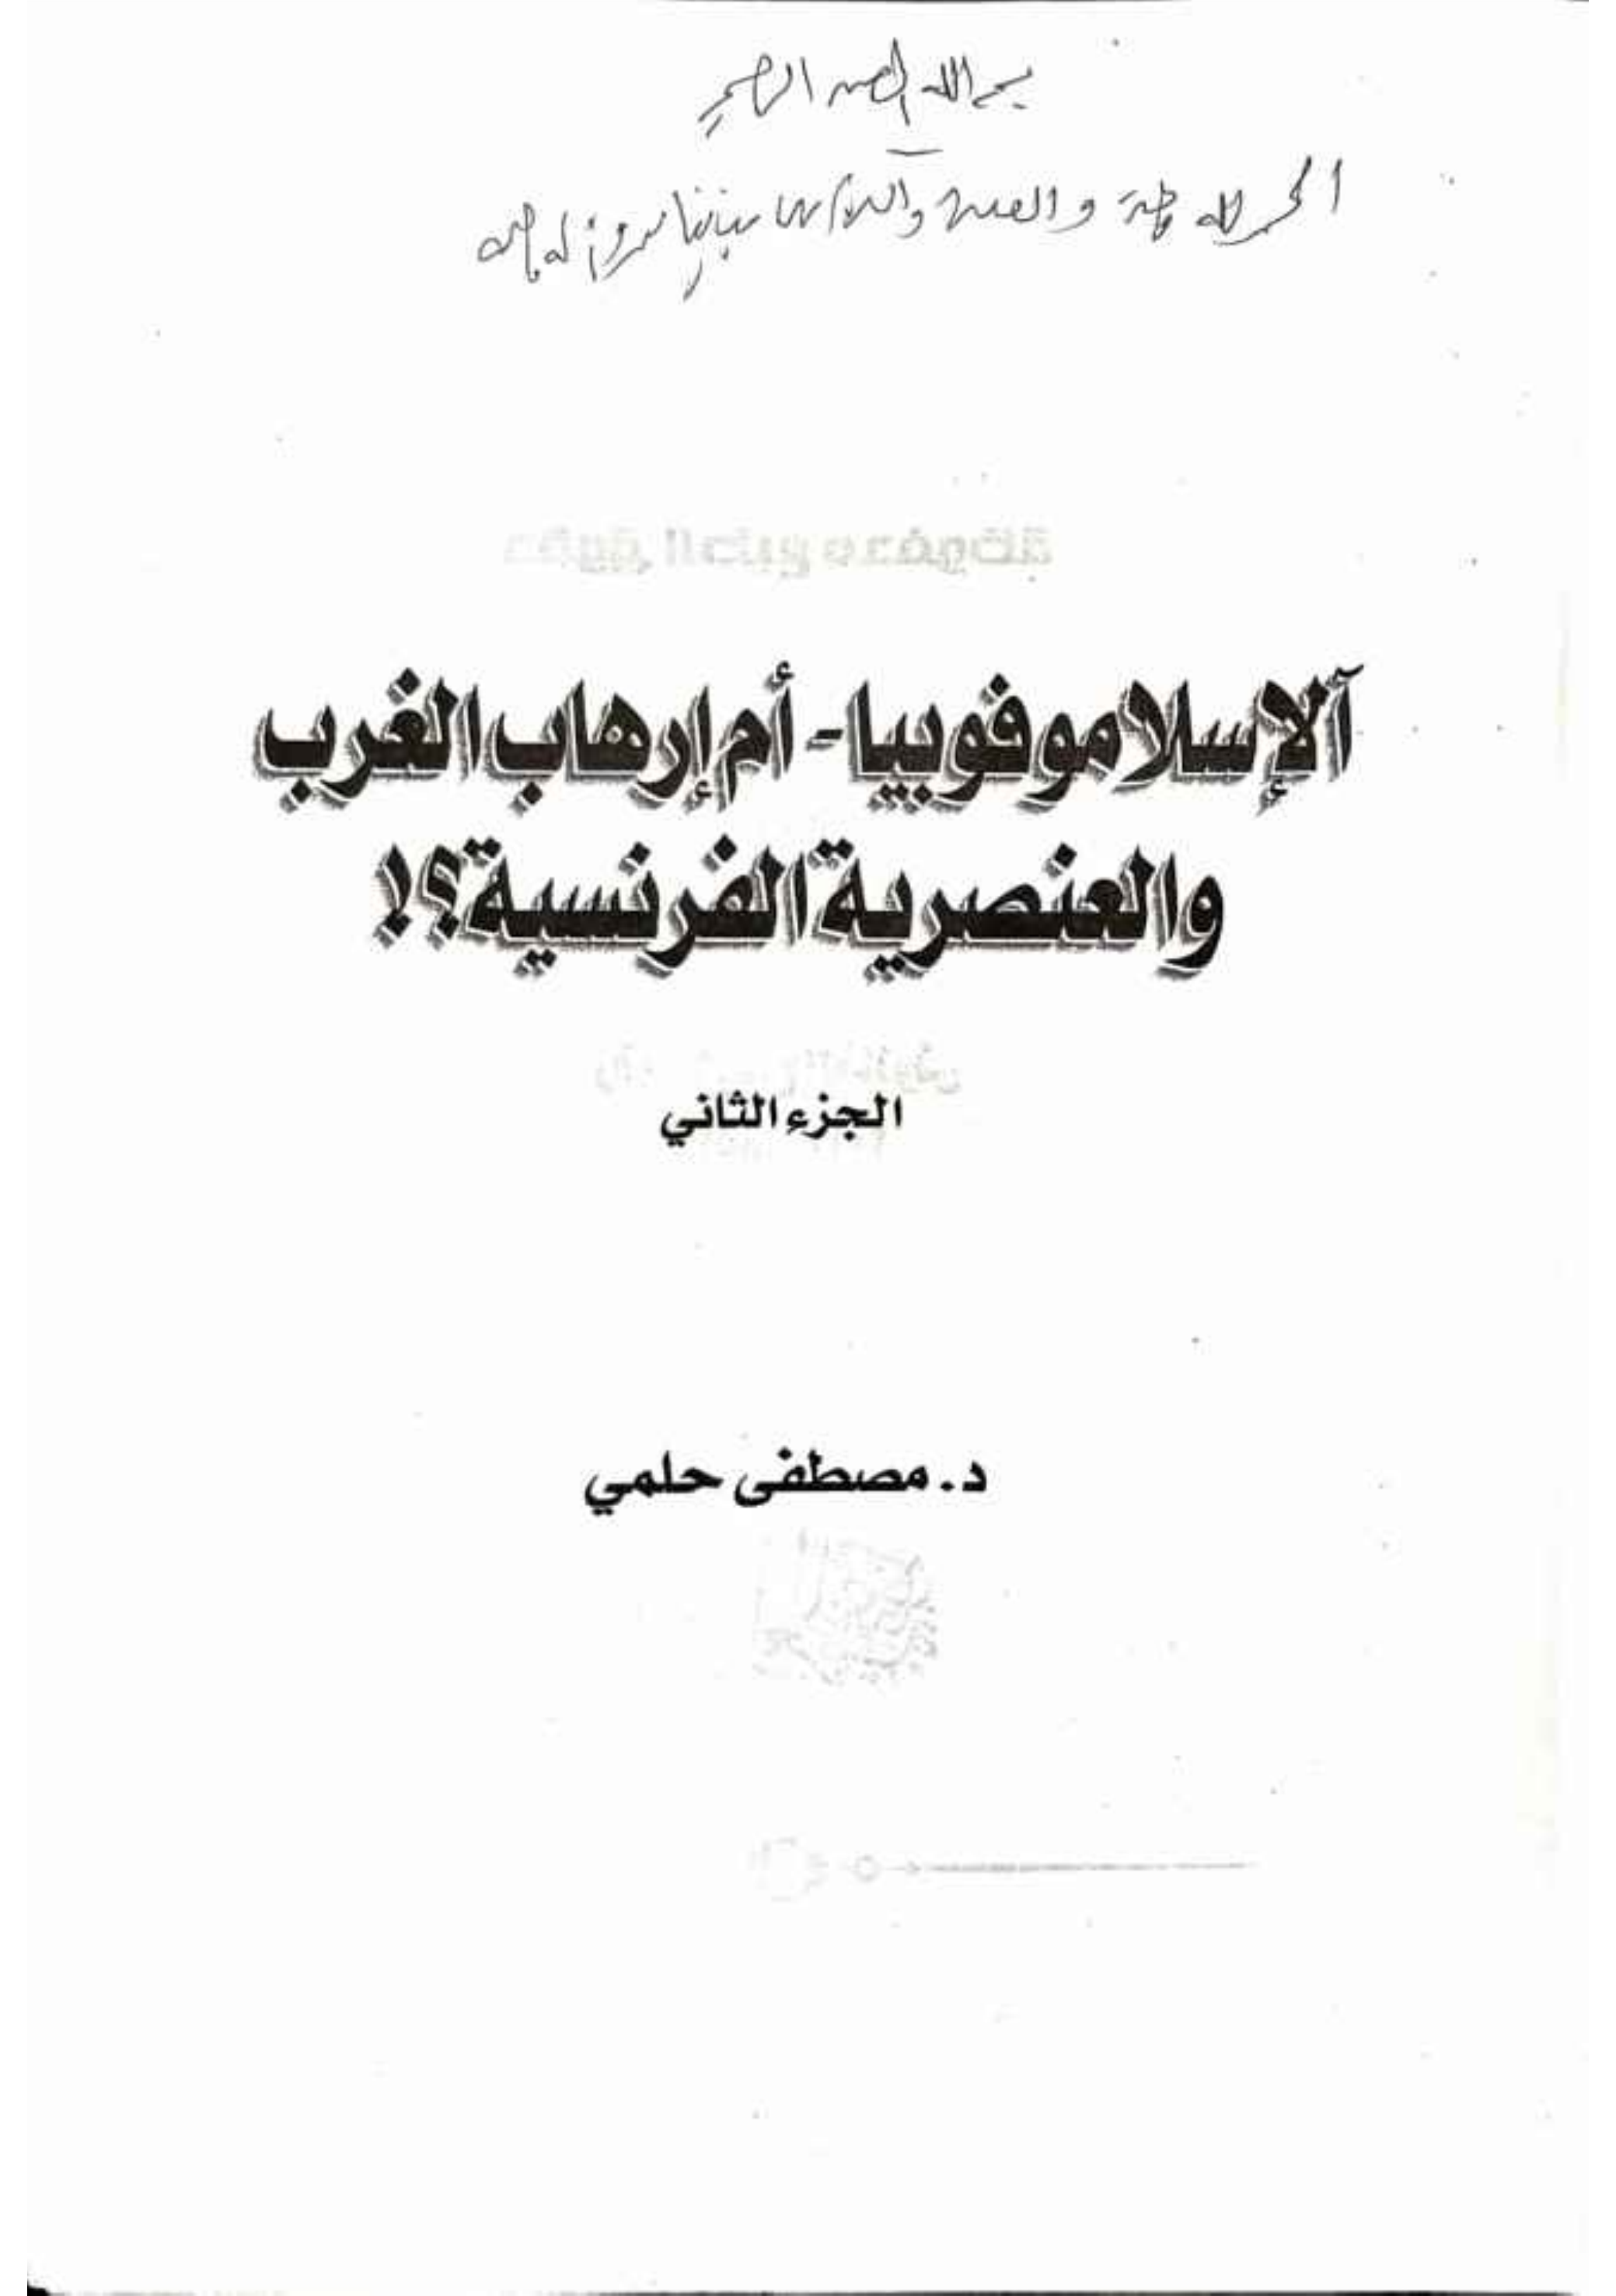 بسم الله الرحمن الرحيم
الحمد لله والصلاة والسلام
آلإسلاموفوبيا- أم إرهاب الغرب
والعنصرية الفرنسية؟!
الجزء الثاني
د. مصطفى حلمي